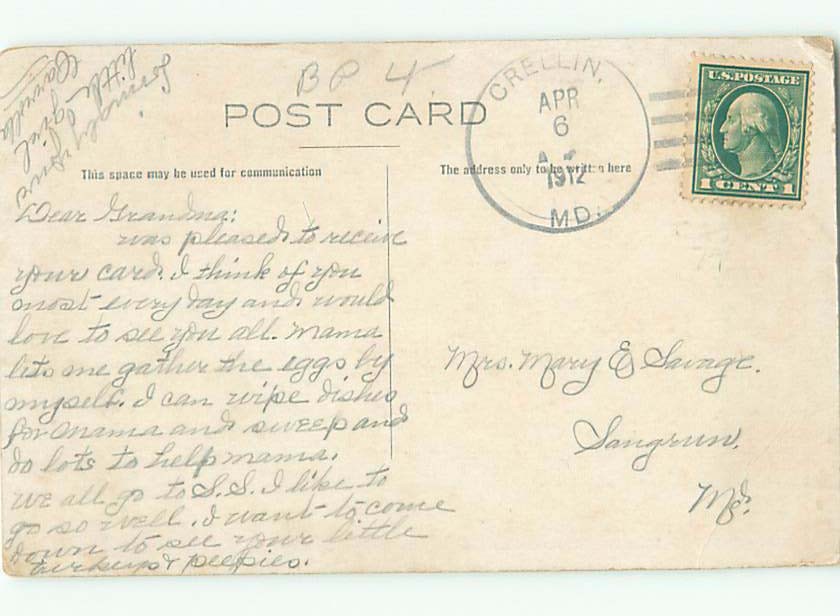 BP 4
POST CARD
CRELLIN,
APR
6
1912
MD.
U.S. POSTAGE
1 CENT 1
This space may be used for communication
The address only to be written here
Dear Grandma:
was pleased to receive
your card. I think of you
most every day and would
love to see you all. Mama
lets me gather the eggs by
myself. I can wipe dishes
for Mama and sweep and
do lots to help mama.
we all go to S.S. I like to
go so well. I want to come
down to see your little
turkeys & peepies.
Lovingly yours
little girl
Mrs. Mary E Savage.
Sangrun,
Md.